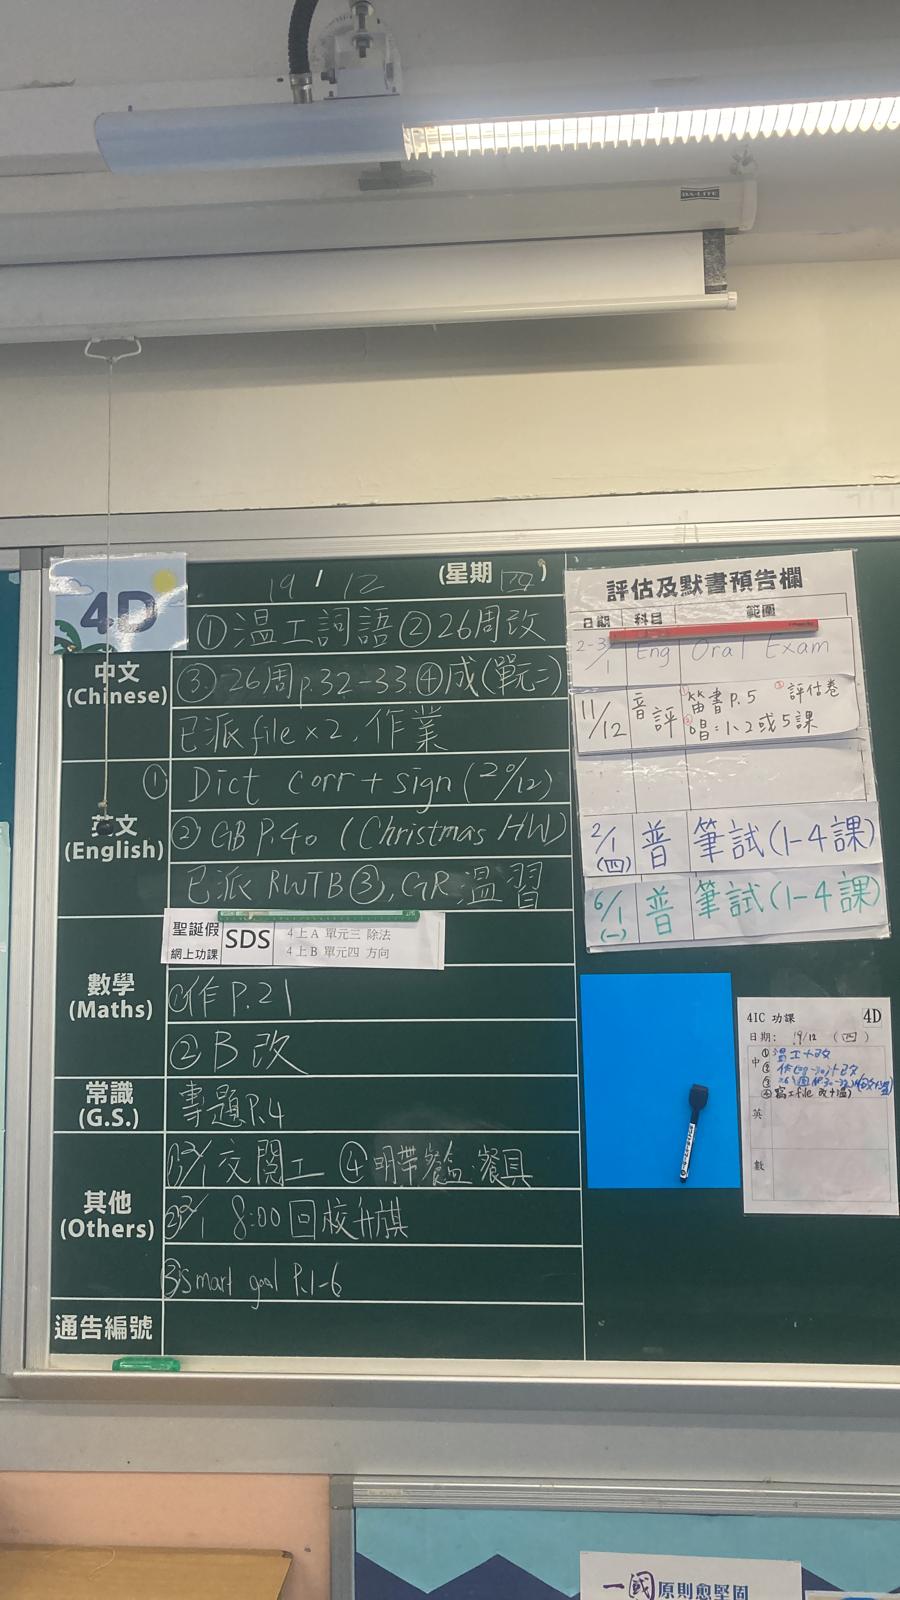 DA-LITE
4D
19 / 12 (星期四)
中文
(Chinese)
①温工詞語 ②26周改
③26周p.32-33 ④成(單元二)
已派file×2, 作業
英文
(English)
① Dict corr + sign (20/12)
② GB P.40 (Christmas HW)
已派 RWTB③, GR 温習
數學
(Maths)
聖誕假
網上功課
SDS
4上A 單元三 除法
4上B 單元四 方向
①作 P.21
②B改
常識
(G.S.)
專題P.4
其他
(Others)
①2/1 交閱工 ④明帶餐盒、餐具
②2/1 8:00回校升旗
③smart goal P.1-6
通告編號
評估及默書預告欄
日期 科目 範圍
2-3/1 Eng Oral Exam
11/12 音評 ①笛書P.5 ③評估卷
②唱:1、2或5課
2/1 (四) 普 筆試(1-4課)
6/1 (一) 普 筆試(1-4課)
4IC 功課 4D
日期: 19/12 (四)
中 ①温工+改
英
數
一國原則愈堅固